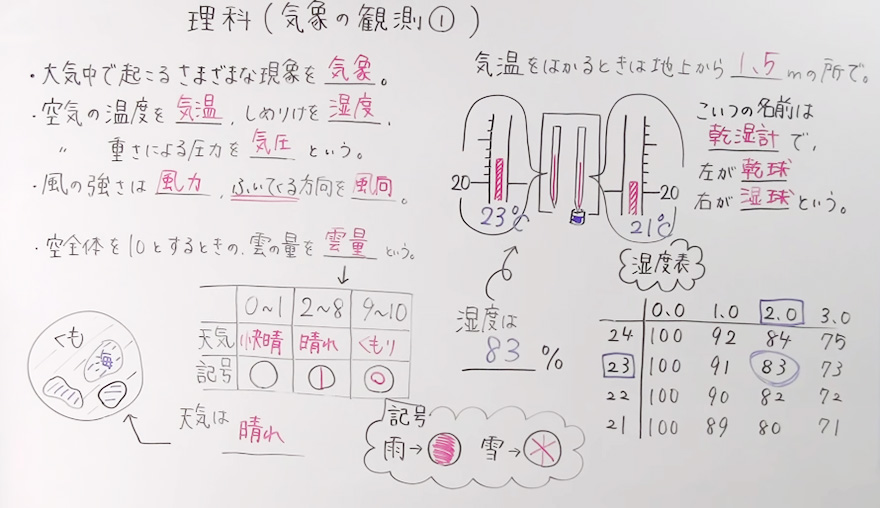 理科(気象の観測①)
・大気中で起こるさまざまな現象を 気象。
・空気の温度を 気温、しめりけを 湿度、
〃 重さによる圧力を 気圧 という。
・風の強さは 風力、ふいてくる方向を 風向。
・空全体を10とするときの、雲の量を 雲量 という。
0~1 2~8 9~10
天気 快晴 晴れ くもり
記号
くも
海
天気は 晴れ
記号
雨→ 雪→
気温をはかるときは地上から 1.5 mの所で。
20
23℃
20
21℃
こいつの名前は
乾湿計 で、
左が 乾球
右が 湿球 という。
湿度は
83 %
湿度表
0.0 1.0 2.0 3.0
24 100 92 84 75
23 100 91 83 73
22 100 90 82 72
21 100 89 80 71